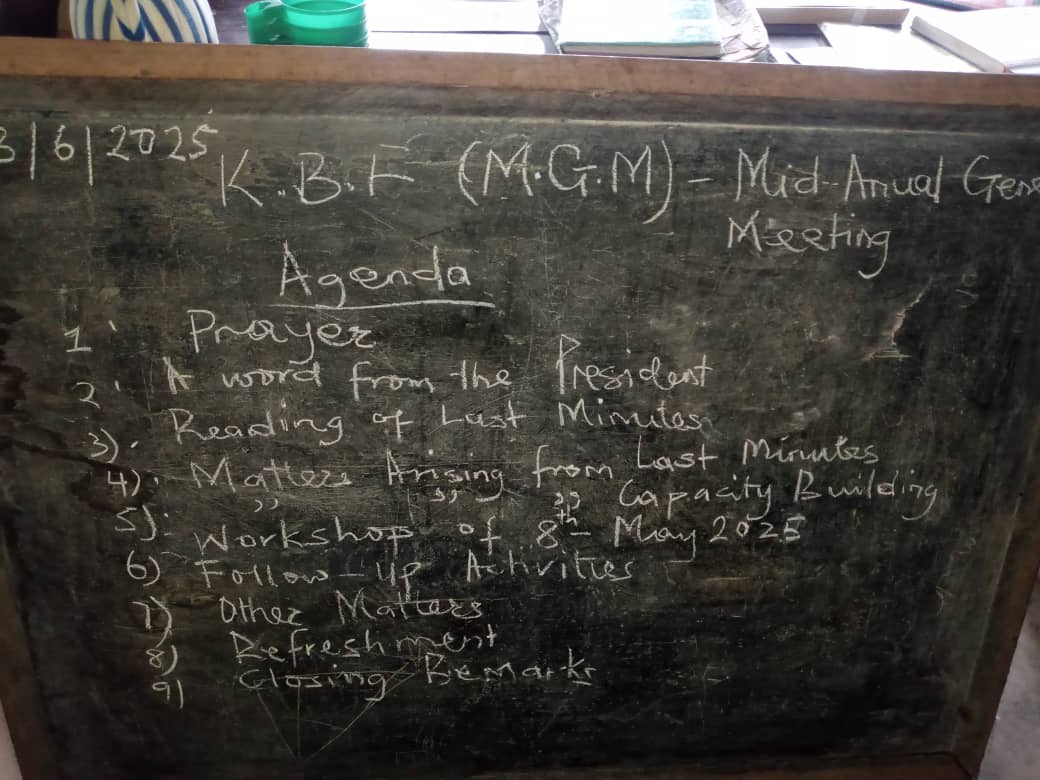 3/6/2025
K.B.F (M.G.M) - Mid-Anual Gene
Meeting
Agenda
1' Prayer
2' A word from the President
3). Reading of Last Minutes
4). Matters Arising from Last Minutes
5). ,, ,, ,, Capacity Building
Workshop of 8th May 2025
6) Follow-Up Activities
7) Other Matters
8) Refreshment
9) Closing Remarks